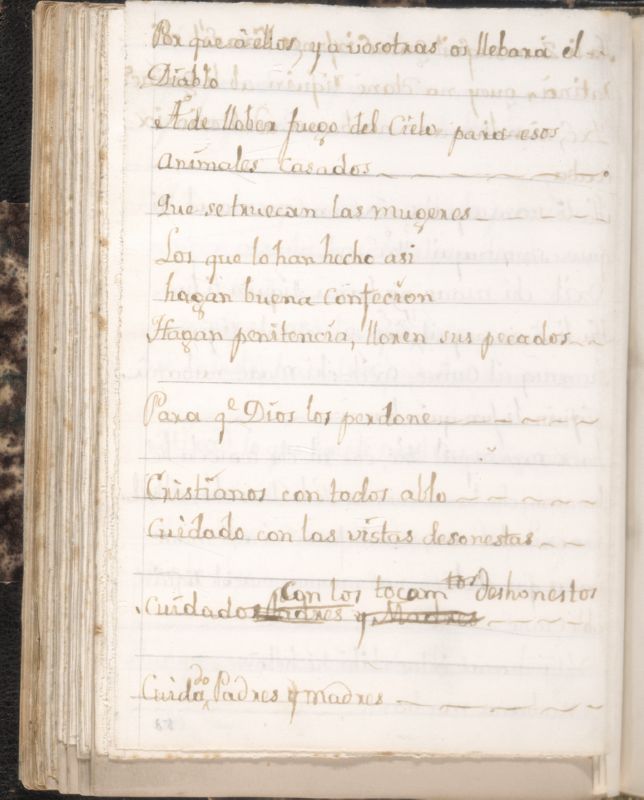 Por que â ellos, y a vosotras os llebara el
Diablo
A de llober fuego del Cielo para esos
animales casados
Que se truecan las mugeres
Los que lo han hecho asi
hagan buena confecion
Hagan penitencia, lloren sus pecados
Para qe Dios los perdone
Cristianos con todos ablo
Cuidado con las vistas desonestas
Con los tocamtos deshonestos
Cuidado Padres y Madres
Cuidado Padres y madres
58